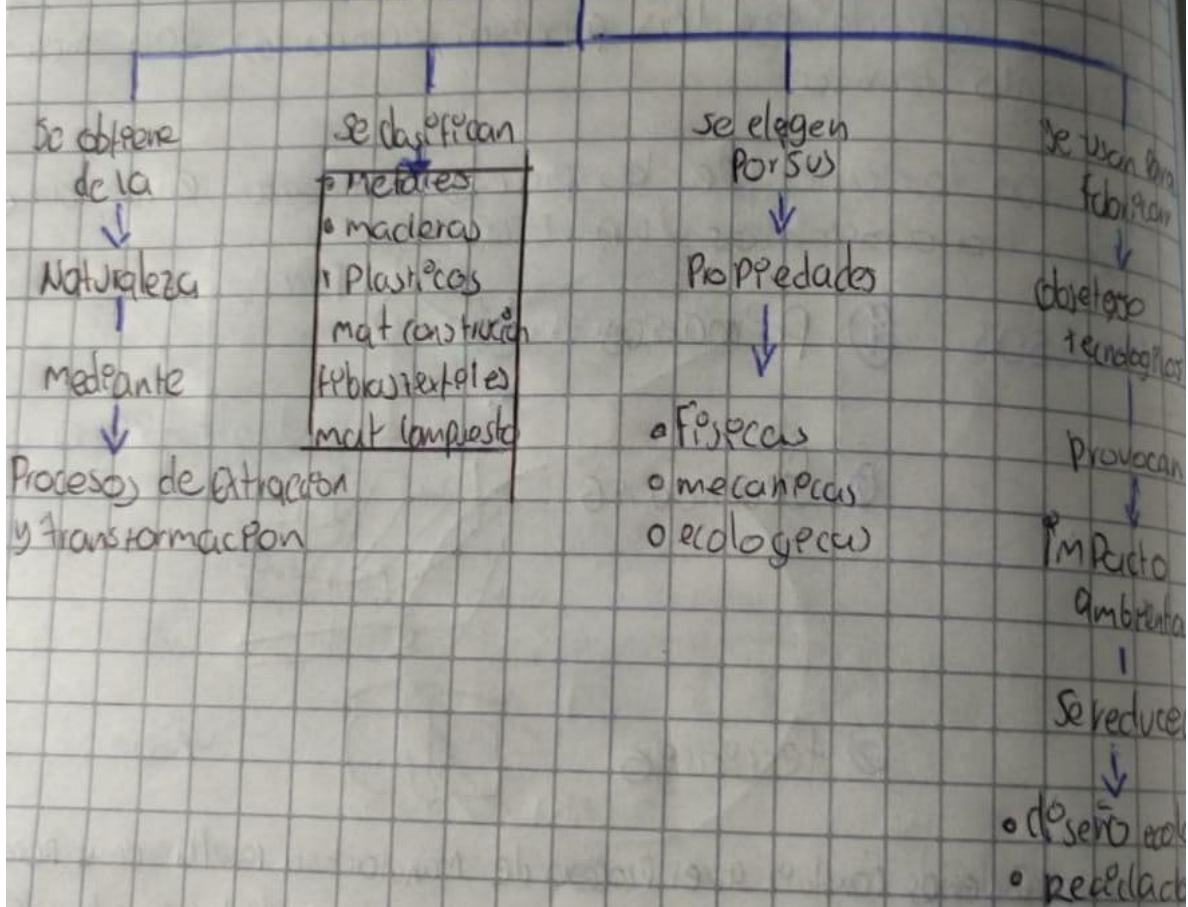 Se obtiene
de la
Naturaleza
mediante
Procesos de extraccion
y transformacion
se clasifican
metales
• maderas
• Plasticos
mat construccion
fibras textiles
mat compuesto
se eligen
Por sus
Propiedades
• Fisicas
• mecanicas
• ecologicas
Se usan para
fabricar
objetos
tecnologicos
Provocan
impacto
ambienta
Se reduce
• diseño ecol
• Reciclado